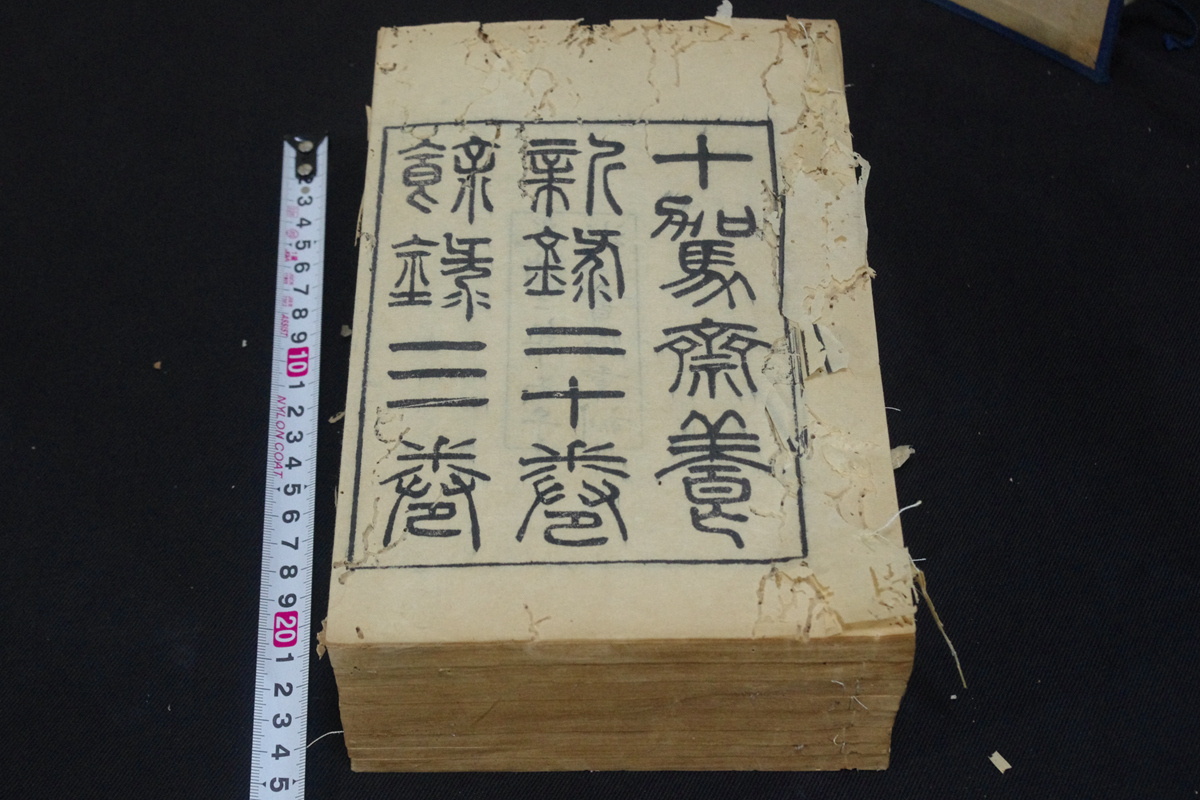 十駕齋養
新錄二十卷
餘錄三卷
2 3 4 5 6 7 8 9 10 1 2 3 4 5 6 7 8 9 20 1 2 3 4 5
NYLON COAT